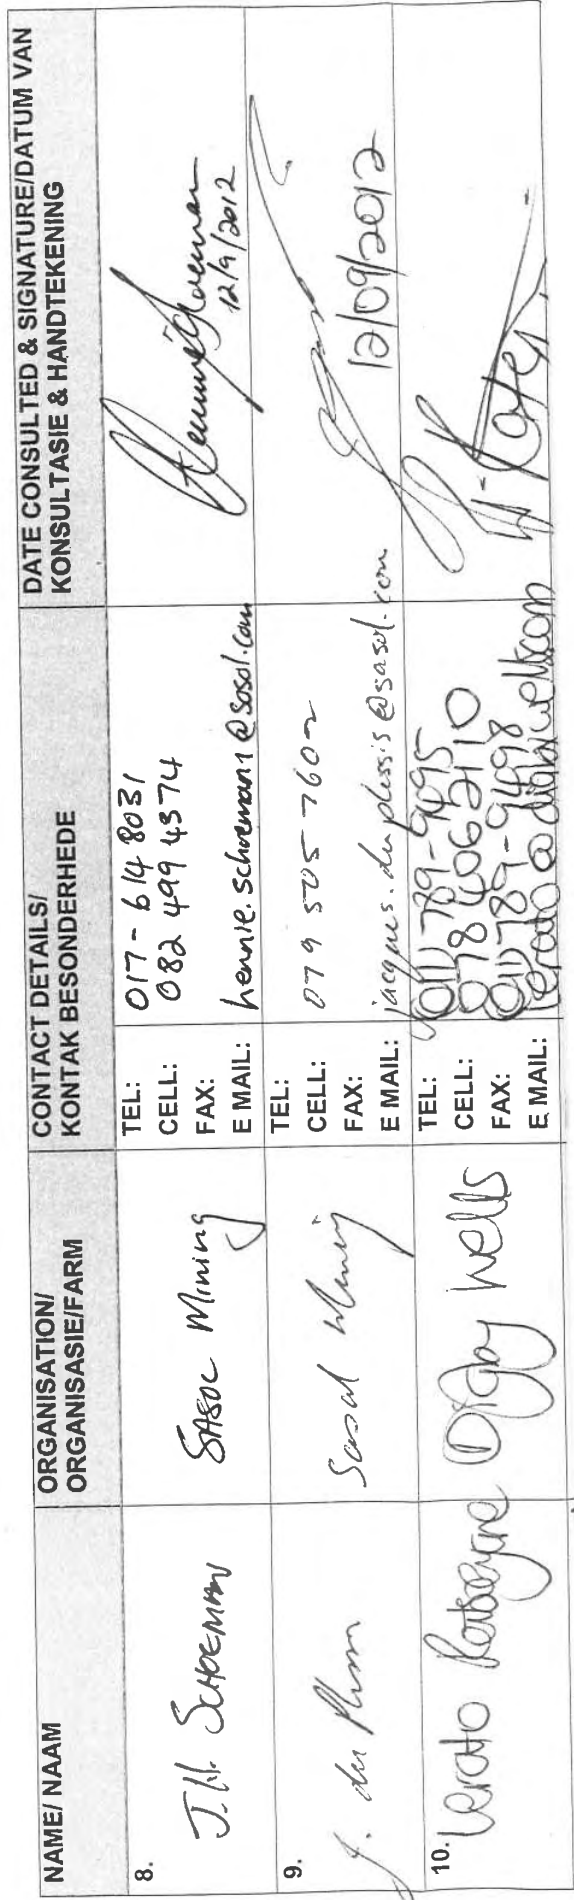 NAME/ NAAM
ORGANISATION/
ORGANISASIE/FARM
CONTACT DETAILS/
KONTAK BESONDERHEDE
DATE CONSULTED & SIGNATURE/DATUM VAN
KONSULTASIE & HANDTEKENING
8.
J.H. SCHOEMAN
SASOL Mining
TEL: 017 - 614 8031
CELL: 082 499 4374
FAX:
E MAIL: hennie.schoeman1@sasol.com
12/9/2012
9.
J. du Plessis
Sasol Mining
TEL:
CELL: 079 505 7602
FAX:
E MAIL: jacques.duplessis@sasol.com
12/09/2012
10.
Lerato
Digby Wells
TEL: (011) 789-9495
CELL: 078 406 2110
FAX: (011) 789-9498
E MAIL: lerato@digbywells.com